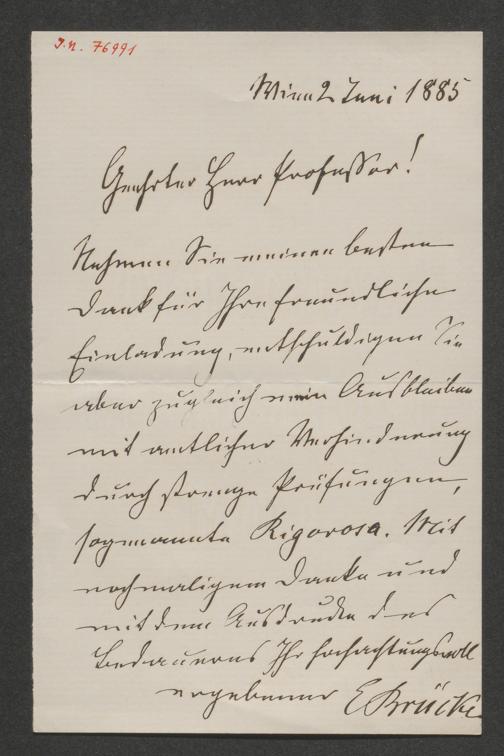 J.N. 76991
Wien 2 Juni 1885
Geehrter Herr Professor!
Nehmen Sie meinen besten
Dank für Ihre freundliche
Einladung, entschuldigen Sie
aber zugleich mein Ausbleiben
mit amtlicher Verhinderung
durch strenge Prüfungen,
sogenannte Rigorosa. Mit
nochmaligem Danke und
mit dem Ausdrucke des
Bedauerns Ihr hochachtungsvoll
ergebener E Brücke